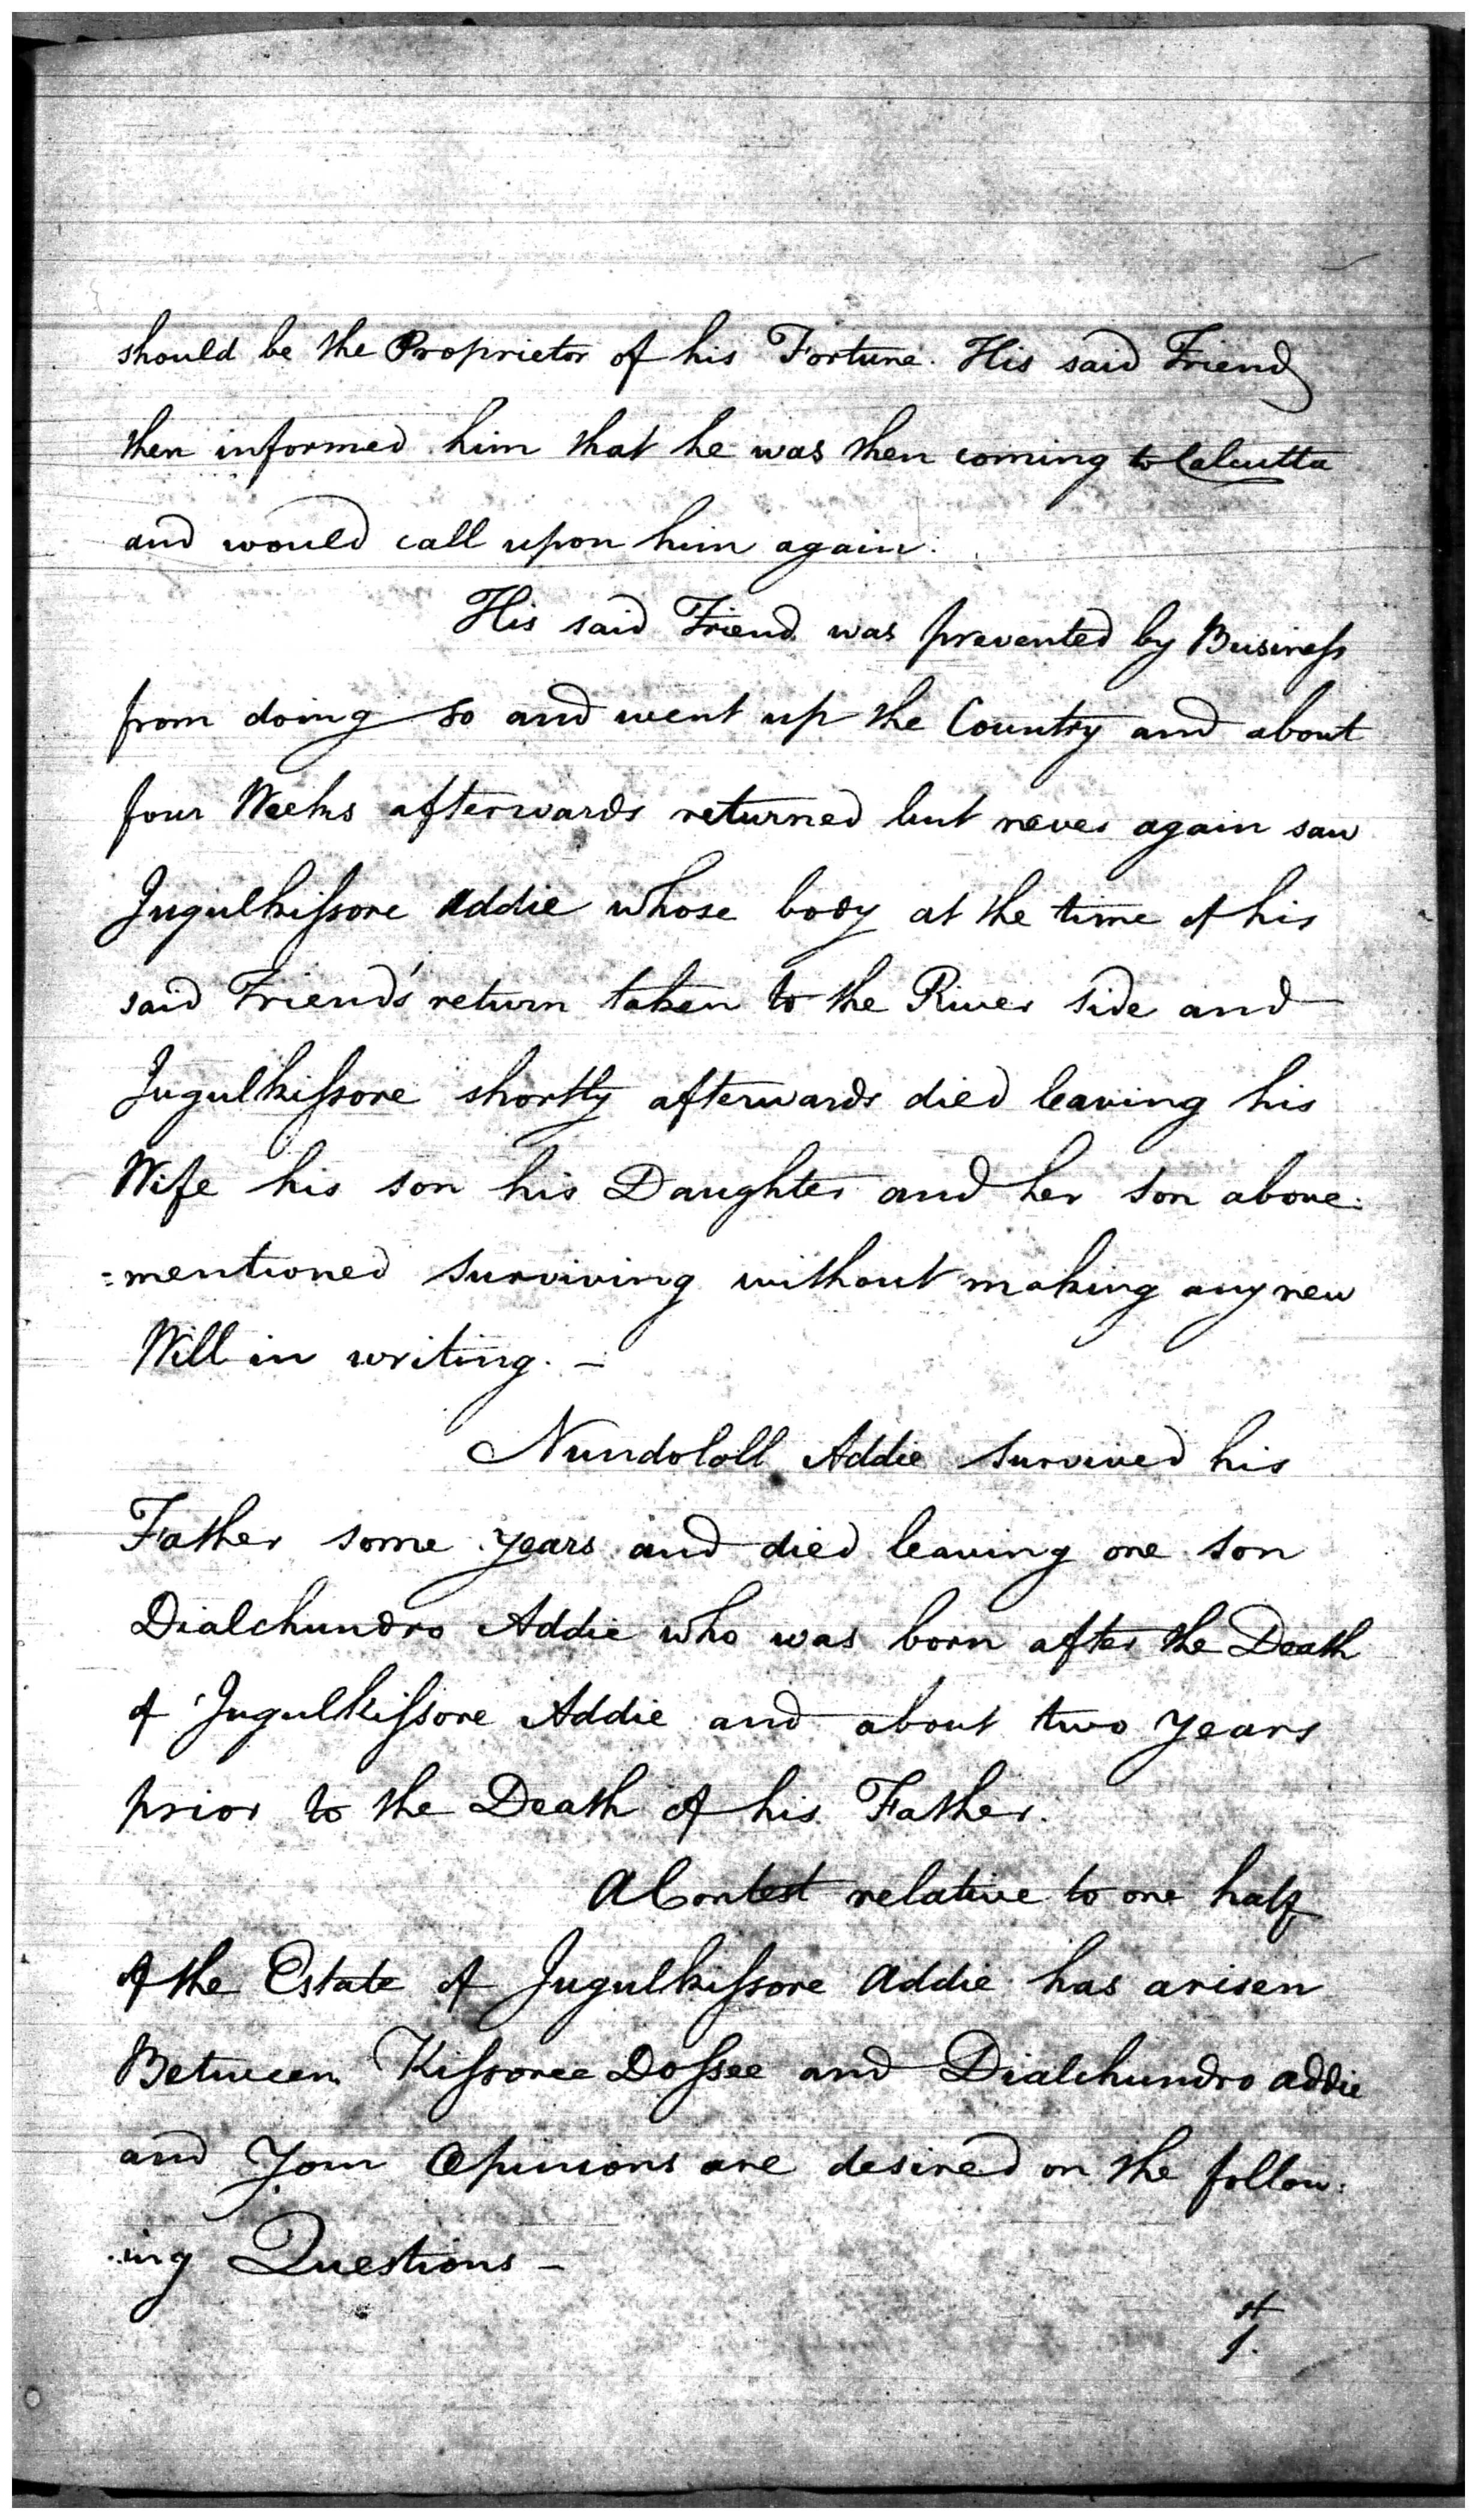 should be the Proprietor of his Fortune. His said Friend
then informed him that he was then coming to Calcutta
and would call upon him again.
His said Friend was prevented by Busineſs
from doing so and went up the Country and about
four Weeks afterwards returned but never again saw
Jugulkiſsore Addie whose body at the time of his
said Friend's return taken to the River side and
Jugulkiſsore shortly afterwards died leaving his
Wife his son his Daughter and her son above:
=mentioned surviving without making any new
Will in writing. —
Nundololl Addie survived his
Father some years and died leaving one son
Dialchundro Addie who was born after the Death
of Jugulkiſsore Addie and about two years
prior to the Death of his Father.
A Contest relative to one half
of the Estate of Jugulkiſsore Addie has arisen
Between Kiſsoree Doſsee and Dialchundro Addie
and Your Opinions are desired on the follow:
:ing Questions —
1st.